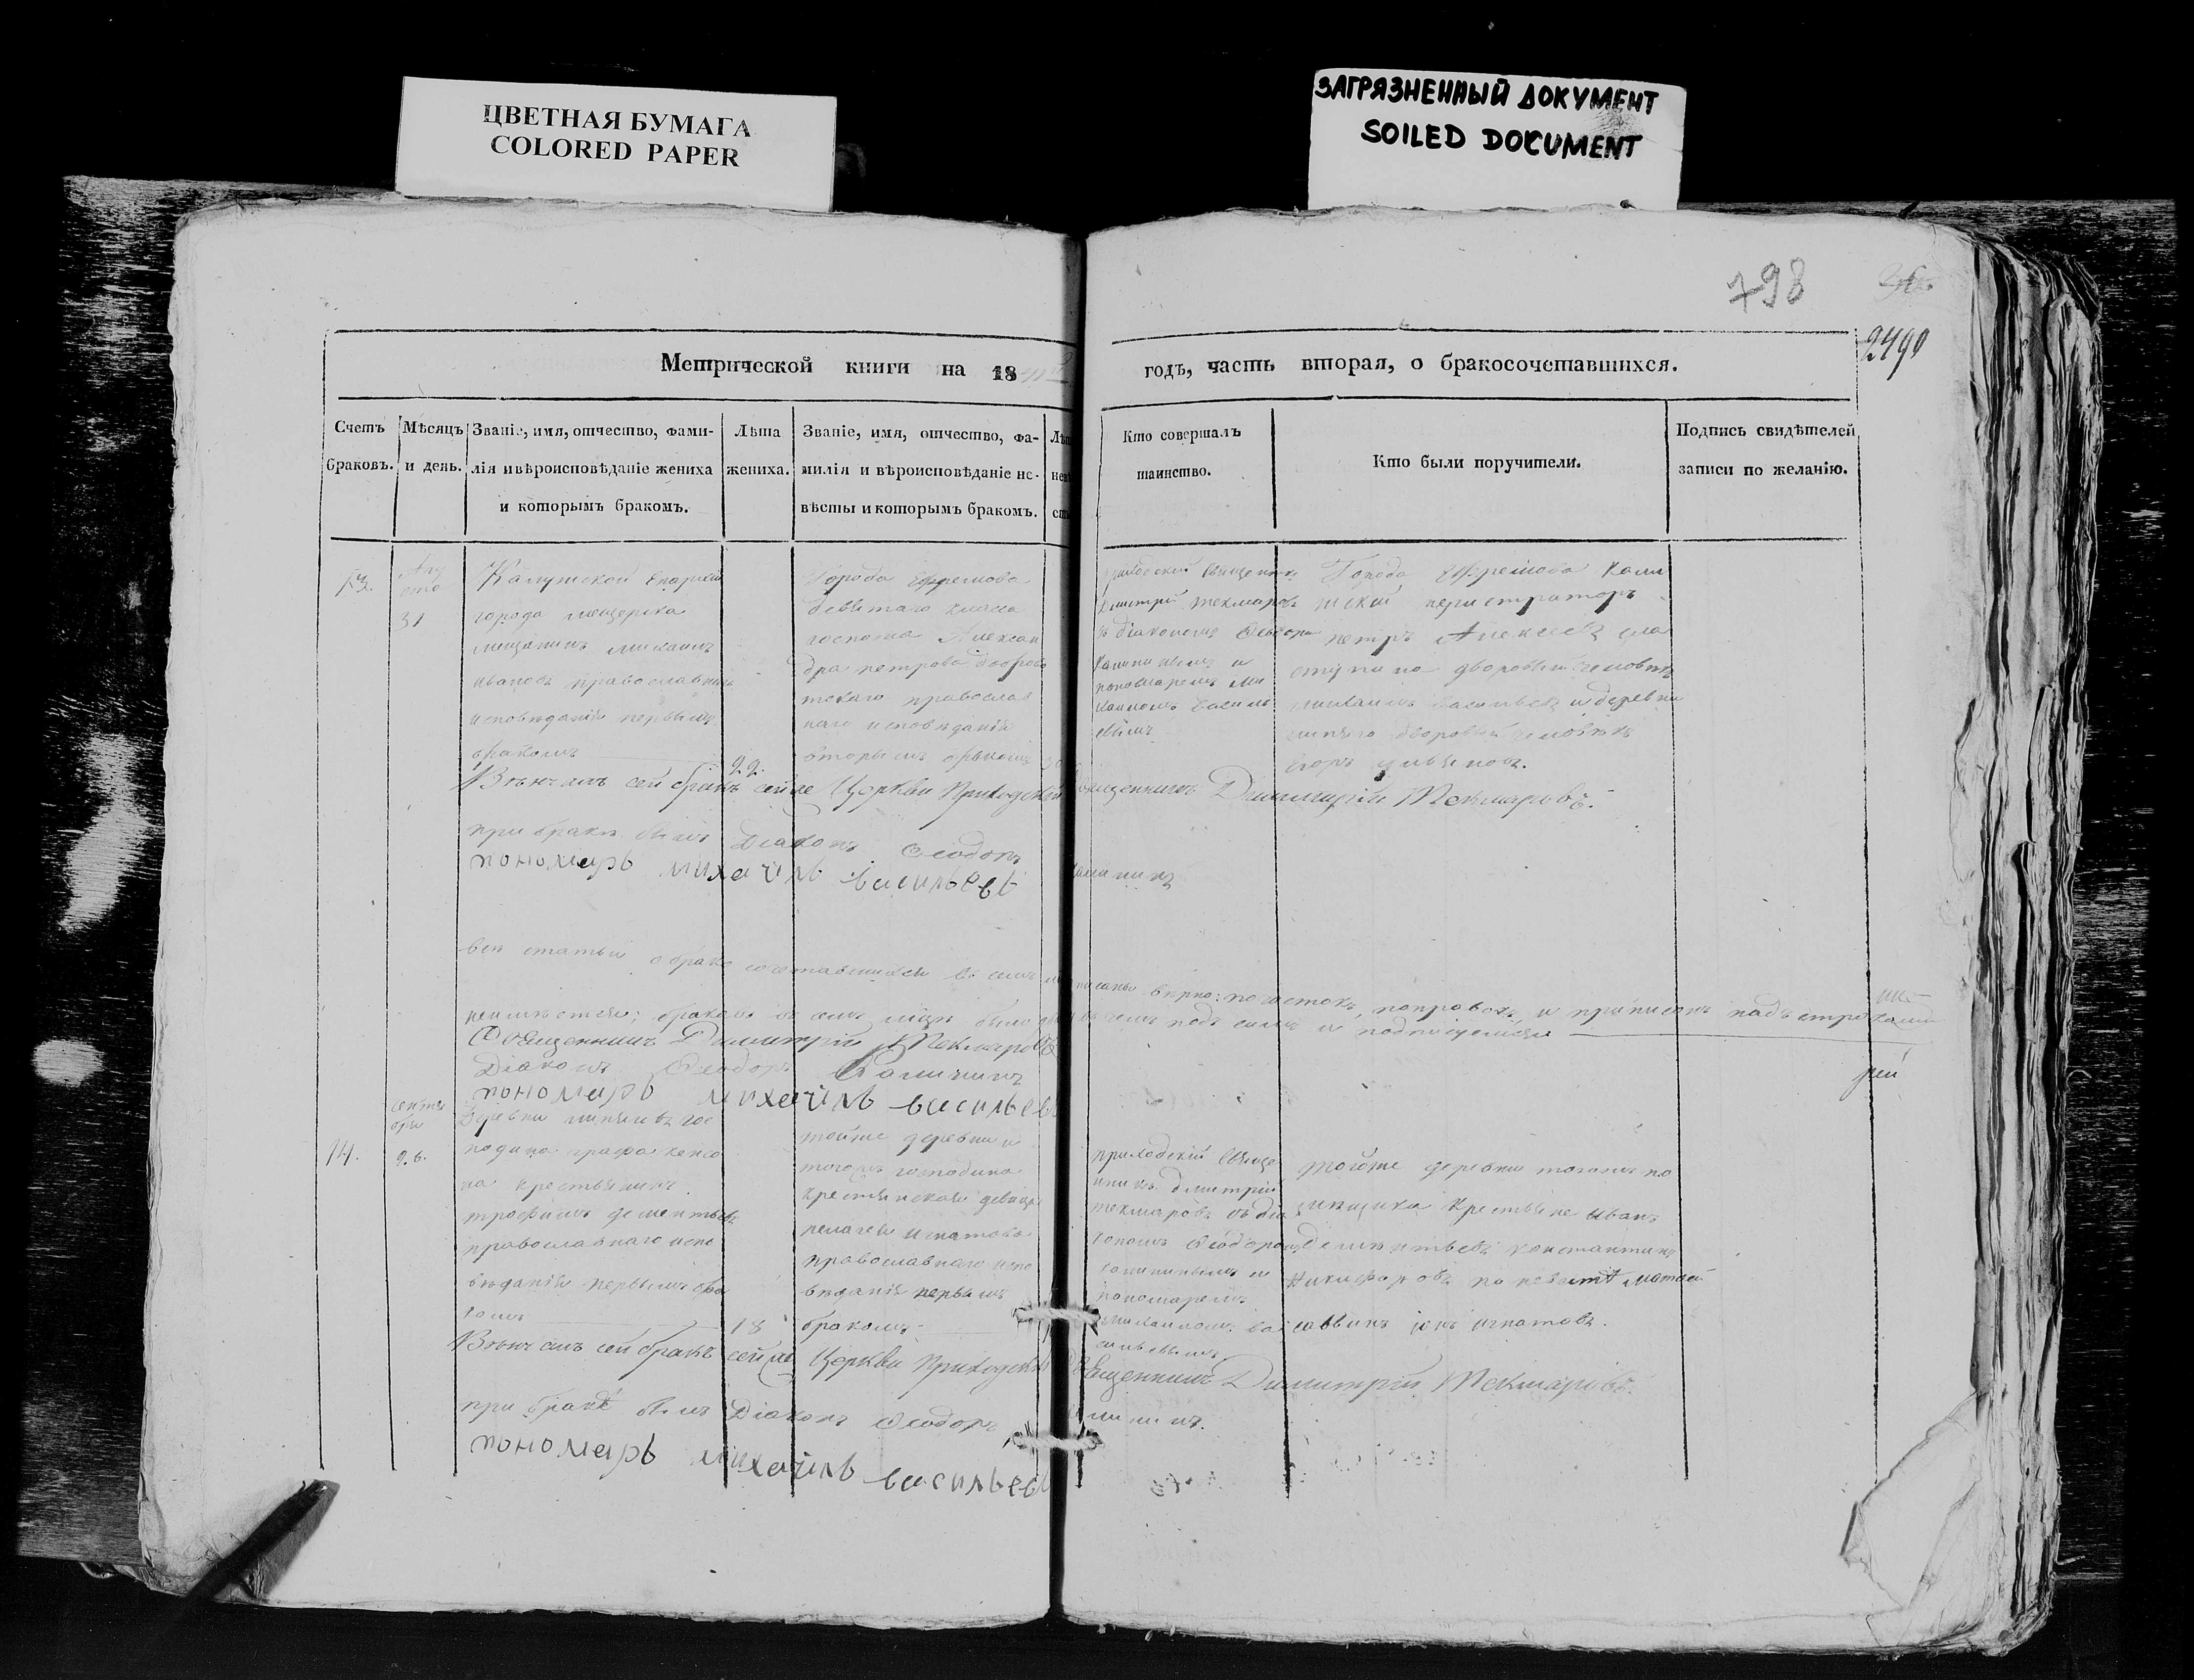 ЦВЕТНАЯ БУМАГА
COLORED PAPER
ЗАГРЯЗНЕННЫЙ ДОКУМЕНТ
SOILED DOCUMENT
798
2490
Метрической книги на 18
годъ, часть вторая, о бракосочетавшихся.
Счетъ браковъ.
Мѣсяцъ и день.
Званіе, имя, отчество, фами-
лія и вѣроисповѣданіе жениха
и которымъ бракомъ.
Лѣта
жениха.
Званіе, имя, отчество, фа-
милія и вѣроисповѣданіе не-
вѣсты и которымъ бракомъ.
Кто совершалъ
таинство.
Кто были поручители.
Подпись свидѣтелей
записи по желанію.
13.
Авгу
ста
31
Калужской Епархіи
города мещерска
мещанинъ михаилъ
ивановъ православнаго
исповѣданія первымъ
бракомъ
22.
Города Ефремова
девятаго класса
госпожа Алексан
дра петрова
православ
наго исповѣданія
вторымъ бракомъ
приходскій Священникъ
Дмитрій текмаровъ
съ діакономъ Ѳеодоромъ
калининымъ и
пономаремъ ми
хаиломъ василь
евымъ
Города Ефремова
регистраторъ
петръ Алексеевъ
дворовый человѣкъ
михаилъ васильевъ и деревни
дворовый человѣкъ
Егоръ
Вѣнчалъ сей бракъ сей же Церкви Приходскій Священникъ Димитрій Текмаровъ.
при бракѣ былъ Діаконъ Ѳеодоръ Калининъ
пономарь михаилъ васильевъ
всѣ статьи о бракосочетавшихся въ семъ писаны вѣрно: почистокъ, поправокъ и приписокъ надъ строками
неимѣется; браковъ въ семъ мцѣ было въ чемъ подъ симъ и подписуемся
Священникъ Димитрій Текмаровъ
Діаконъ Ѳеодоръ Калининъ
пономарь михаилъ васильевъ
14.
сентя
бря
26.
Деревни гос
подина графа
крестьянинъ
трофимъ дементьевъ
православнаго испо
вѣданія первымъ бра
комъ
18
тойже деревни и
тогожъ господина
крестьянская девица
пелагея игнатова
православнаго испо
вѣданія первымъ
бракомъ
приходскій Свяще
нникъ дмитрій
текмаровъ съ діа
кономъ Ѳеодоромъ
калининымъ и
пономаремъ
михаиломъ ва
сильевымъ
тойже деревни тогожъ по
мѣщика крестьяне иванъ
дементьевъ константинъ
никифоровъ по невѣстѣ матвей
саввинъ игнатовъ.
Вѣнчалъ сей бракъ сей же Церкви Приходскій Священникъ Димитрій Текмаровъ.
при бракѣ былъ Діаконъ Ѳеодоръ Калининъ.
пономарь михаилъ васильевъ